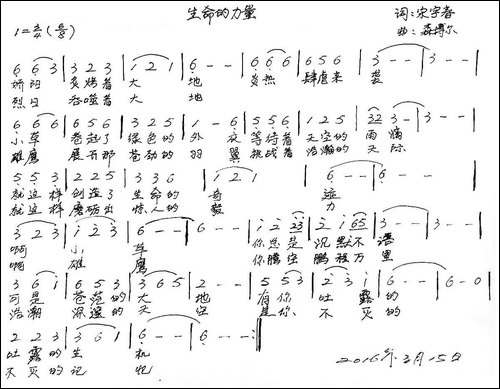 生命的力量
词:宋宇春
曲:森博尔
6 6 3 | 3 2 3 | 1 2 1 | 6 - - | 6 6 6 | 6 5 6 | 3 - - | 3 - - |
娇阳 炙烤着 大 地 炎热 肆虐来 袭
烈日 吞噬着 大 地
6 6 6 | 6 5 6 | 3 2 5 | 1 - 6 | 5 5 6 | 1 2 5 | 32 3 - | 3 - - |
小草 卷起了 绿色的 外 衣 等待着 天空的 雨滴
雄鹰 展开那 苍劲的 羽 翼 挑战着 浩瀚的 天际
5 5 3 | 2 2 2 | 3 3 6 | 1 2 1 | 6 - - | 6 - - |
就这样 创造了 生命的 奇 迹
就这样 磨砺出 惊人的 毅 力
3 2 3 | 1 2 3 | 6 - - | 6 - - | 1 2 23 | 2 1 65 | 3 - - | 3 - - |
啊 小 草 你总是 沉默不 语
啊 雄 鹰 你腾空 鹏程万 里
3 6 1 | 6 5 6 | 3 6 5 | 2 - - | 5 5 3 | 2 3 1 | 6 - - | 6 - 0 |
可是 苍茫的 大 地 有你 吐露 的
浩瀚 深邃的 天 空 是你 不灭 的
2 2 3 | 3 6 1 | 6 - - | 6 - - :|
吐露的 生 机
不灭的 记 忆
2016年3月15日